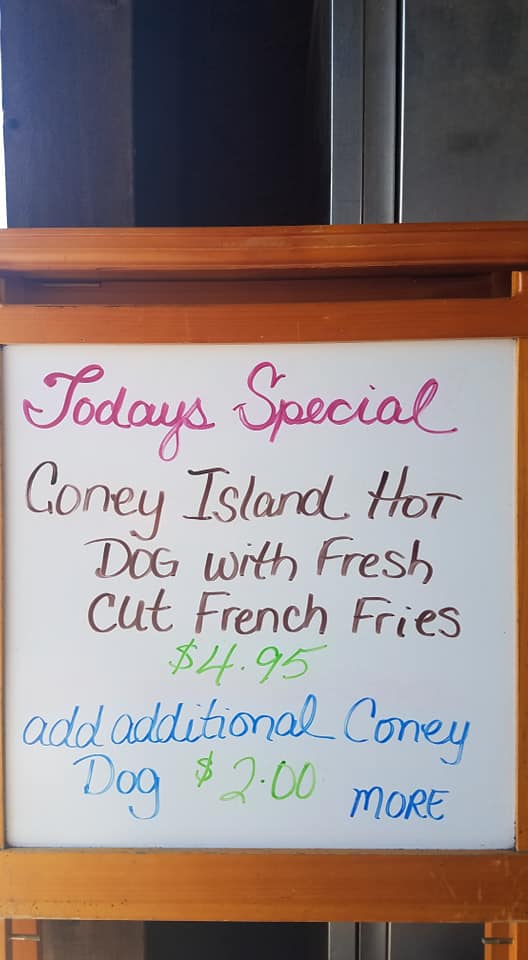 Todays Special
Coney Island HOT
DOG with Fresh
Cut French Fries
$4.95
add additional Coney
Dog $2.00 MORE